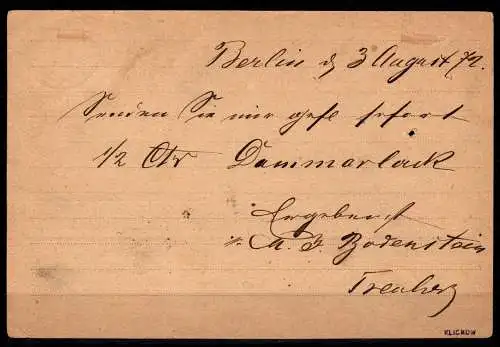 Berlin d 3 August 72.
Senden Sie mir gefl sofort
1/2 Ctr Dammarlack
Ergebenst
A. J. Bodenstein
KLICKOW